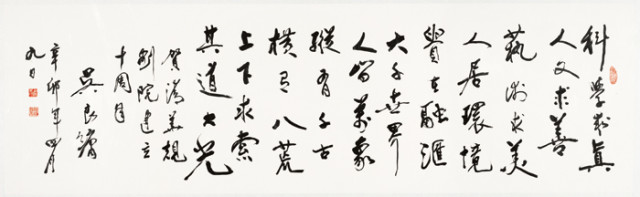 科學求真
人文求善
藝術求美
人居環境
貴在融滙
大千世界
人間萬象
縱有千古
橫有八荒
上下求索
其道大光
賀清華規
劃院建立
十周年
吳良鏞
辛卯年四月
九日